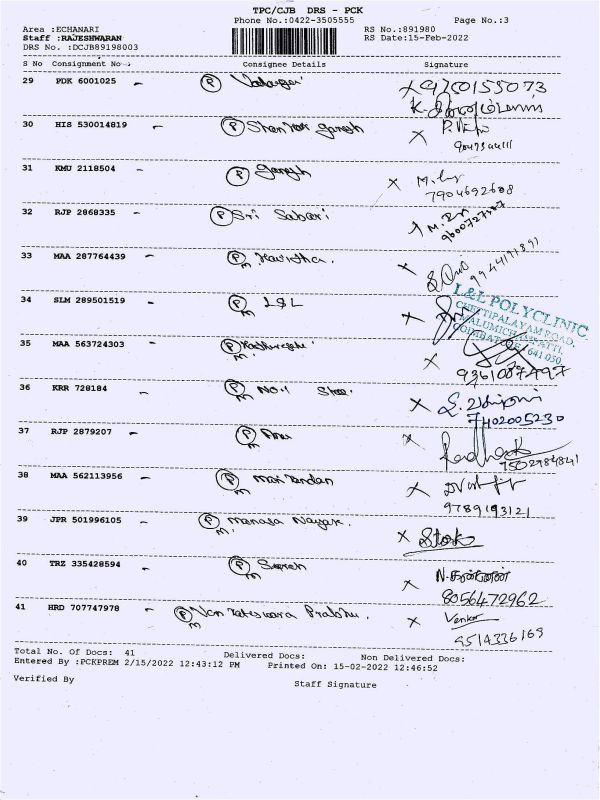 TPC/CJB DRS - PCK
Phone No.:0422-3505555 Page No.:3
Area :ECHANARI RS No.:891980
Staff :RAJESHWARAN RS Date:15-Feb-2022
DRS No. :DCJB89198003
S No Consignment No Consignee Details Signature
29 PDK 6001025 - P 9750155073
30 HIS 530014819 - P Shankar Ganesh X
31 KMU 2118504 - P Ganesh X
7904692608
32 RJP 2868335 - P Sri Sabari
9600727787
33 MAA 287764439 - P Kavitha X
M 9944171891
34 SLM 289501519 - P L&L X
M
L&L POLYCLINIC
CHETTIPALAYAM ROAD,
MALUMICHAMPATTI,
COIMBATORE 641 050
35 MAA 563724303 - P X
M 9361087497
36 KRR 728184 - P No.1 Steel X
M 7402005230
37 RJP 2879207 - P Anu X Radha
M 7502984841
38 MAA 562113956 - P Mari Tendan X
M 9789193121
39 JPR 501996105 - P Manasa Nayak. X
M
40 TRZ 335428594 - P Suresh X
M 8056472962
41 HRD 707747978 - P Venkateswara Prabhu. X Venkat
M 9514336169
Total No. Of Docs: 41 Delivered Docs: Non Delivered Docs:
Entered By :PCKPREM 2/15/2022 12:43:12 PM Printed On: 15-02-2022 12:46:52
Verified By Staff Signature